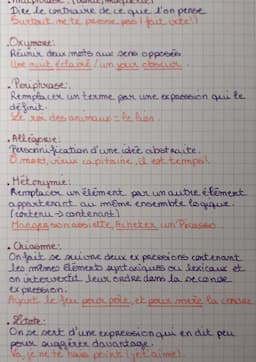 Dire le contraire de ce que l'on pense
Surtout ne te presse pas ! (fait vite !)
. Oxymore:
Réunir deux mots aux sens opposés
Une nuit éclairé / un jour obscur
. Périphrase:
Remplacer un terme par une expression qui le
définit.
Le roi des animaux = le lion.
. Allégorie:
Personnification d'une idée abstraite.
O mort, vieux capitaine, il est temps!
. Métonymie:
Remplacer un élément par un autre élément
appartenant au même ensemble logique.
(contenu → contenant)
Manger son assiette, Acheter un Picasso
. Chiasme:
On fait se suivre deux expressions contenant
les mêmes éléments syntaxiques ou lexicaux et
on intervertit leur ordre dans la seconde
expression.
Ayant le feu pour père, et pour mère la cendre
. Litote:
On se sert d'une expression qui en dit peu
pour suggérer davantage.
Va, je ne te hais point (je t'aime)